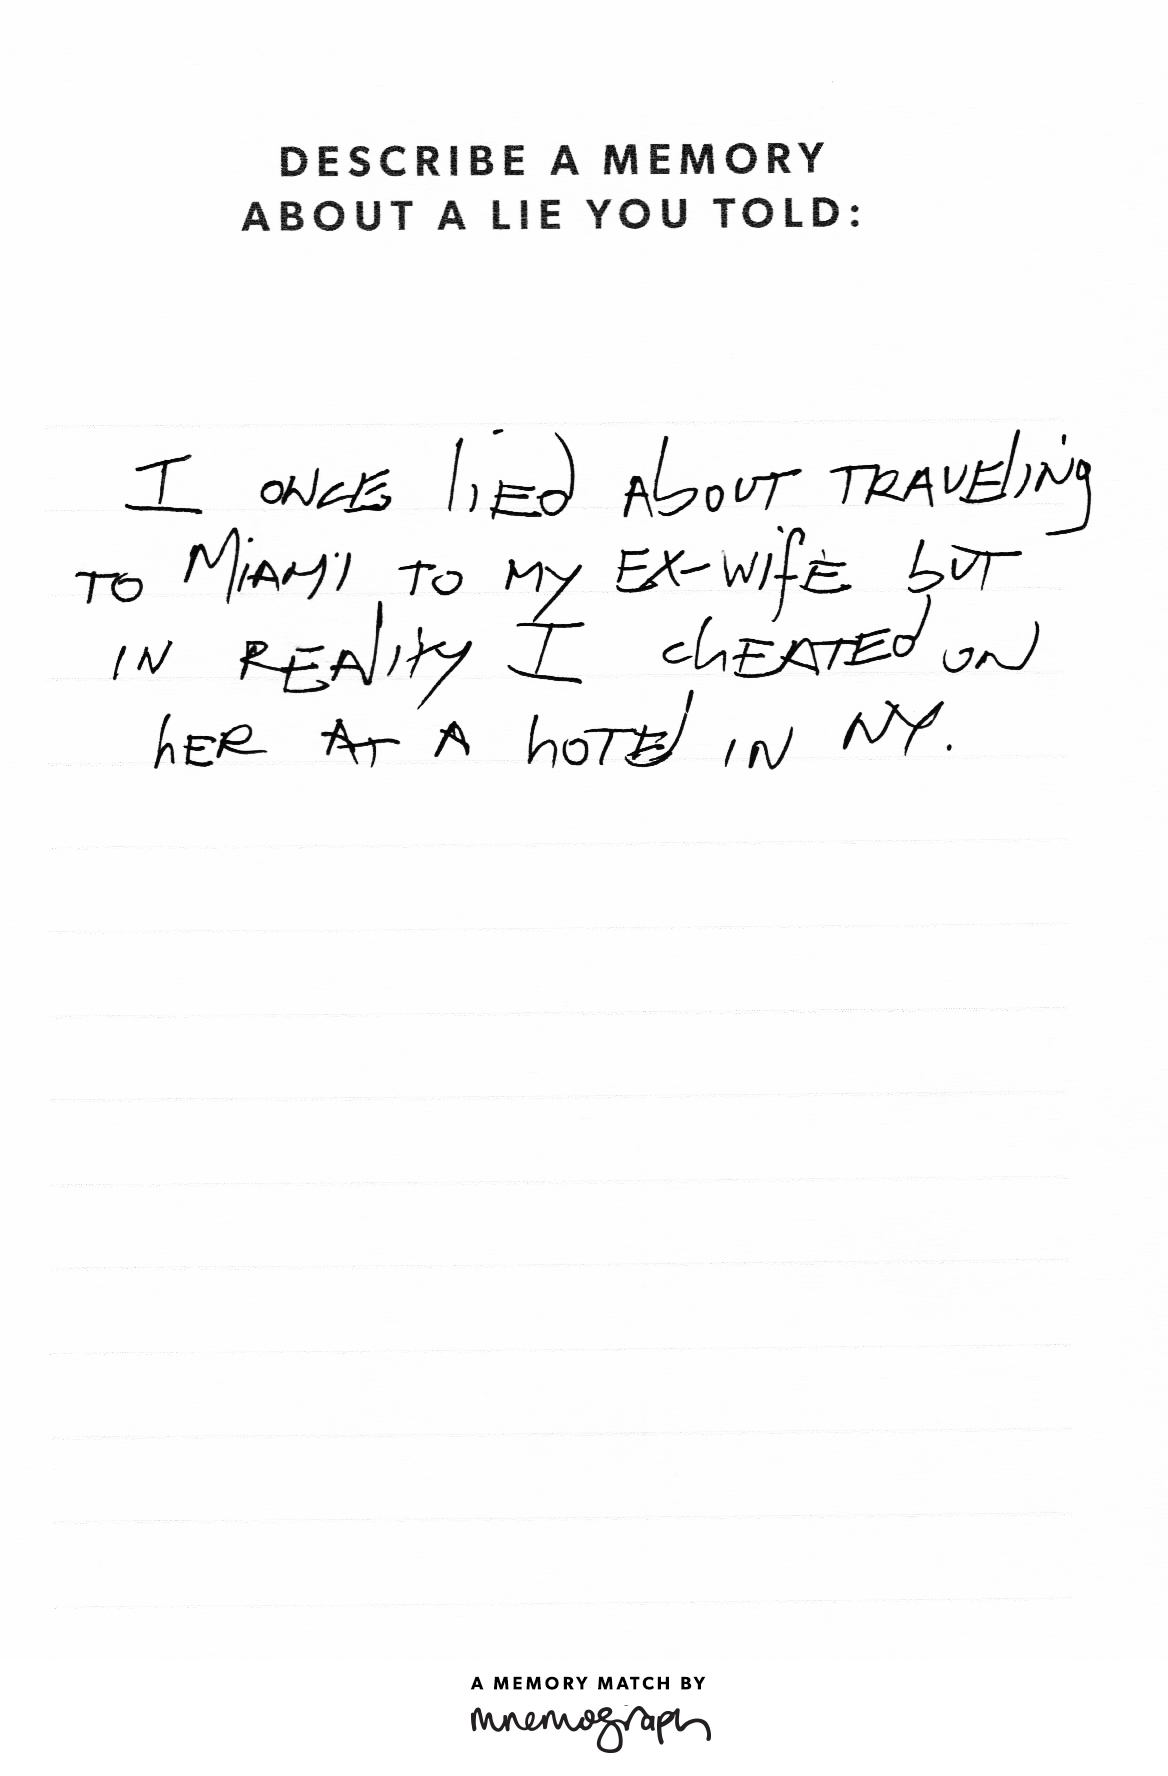 DESCRIBE A MEMORY
ABOUT A LIE YOU TOLD:
I ONCE lIEd AboUT TRAVElING
TO MIAMI TO MY EX-WIfE bUT
IN REAlITY I chEATEd ON
hER AT A hOTEl IN NY.
A MEMORY MATCH BY
mnemograph